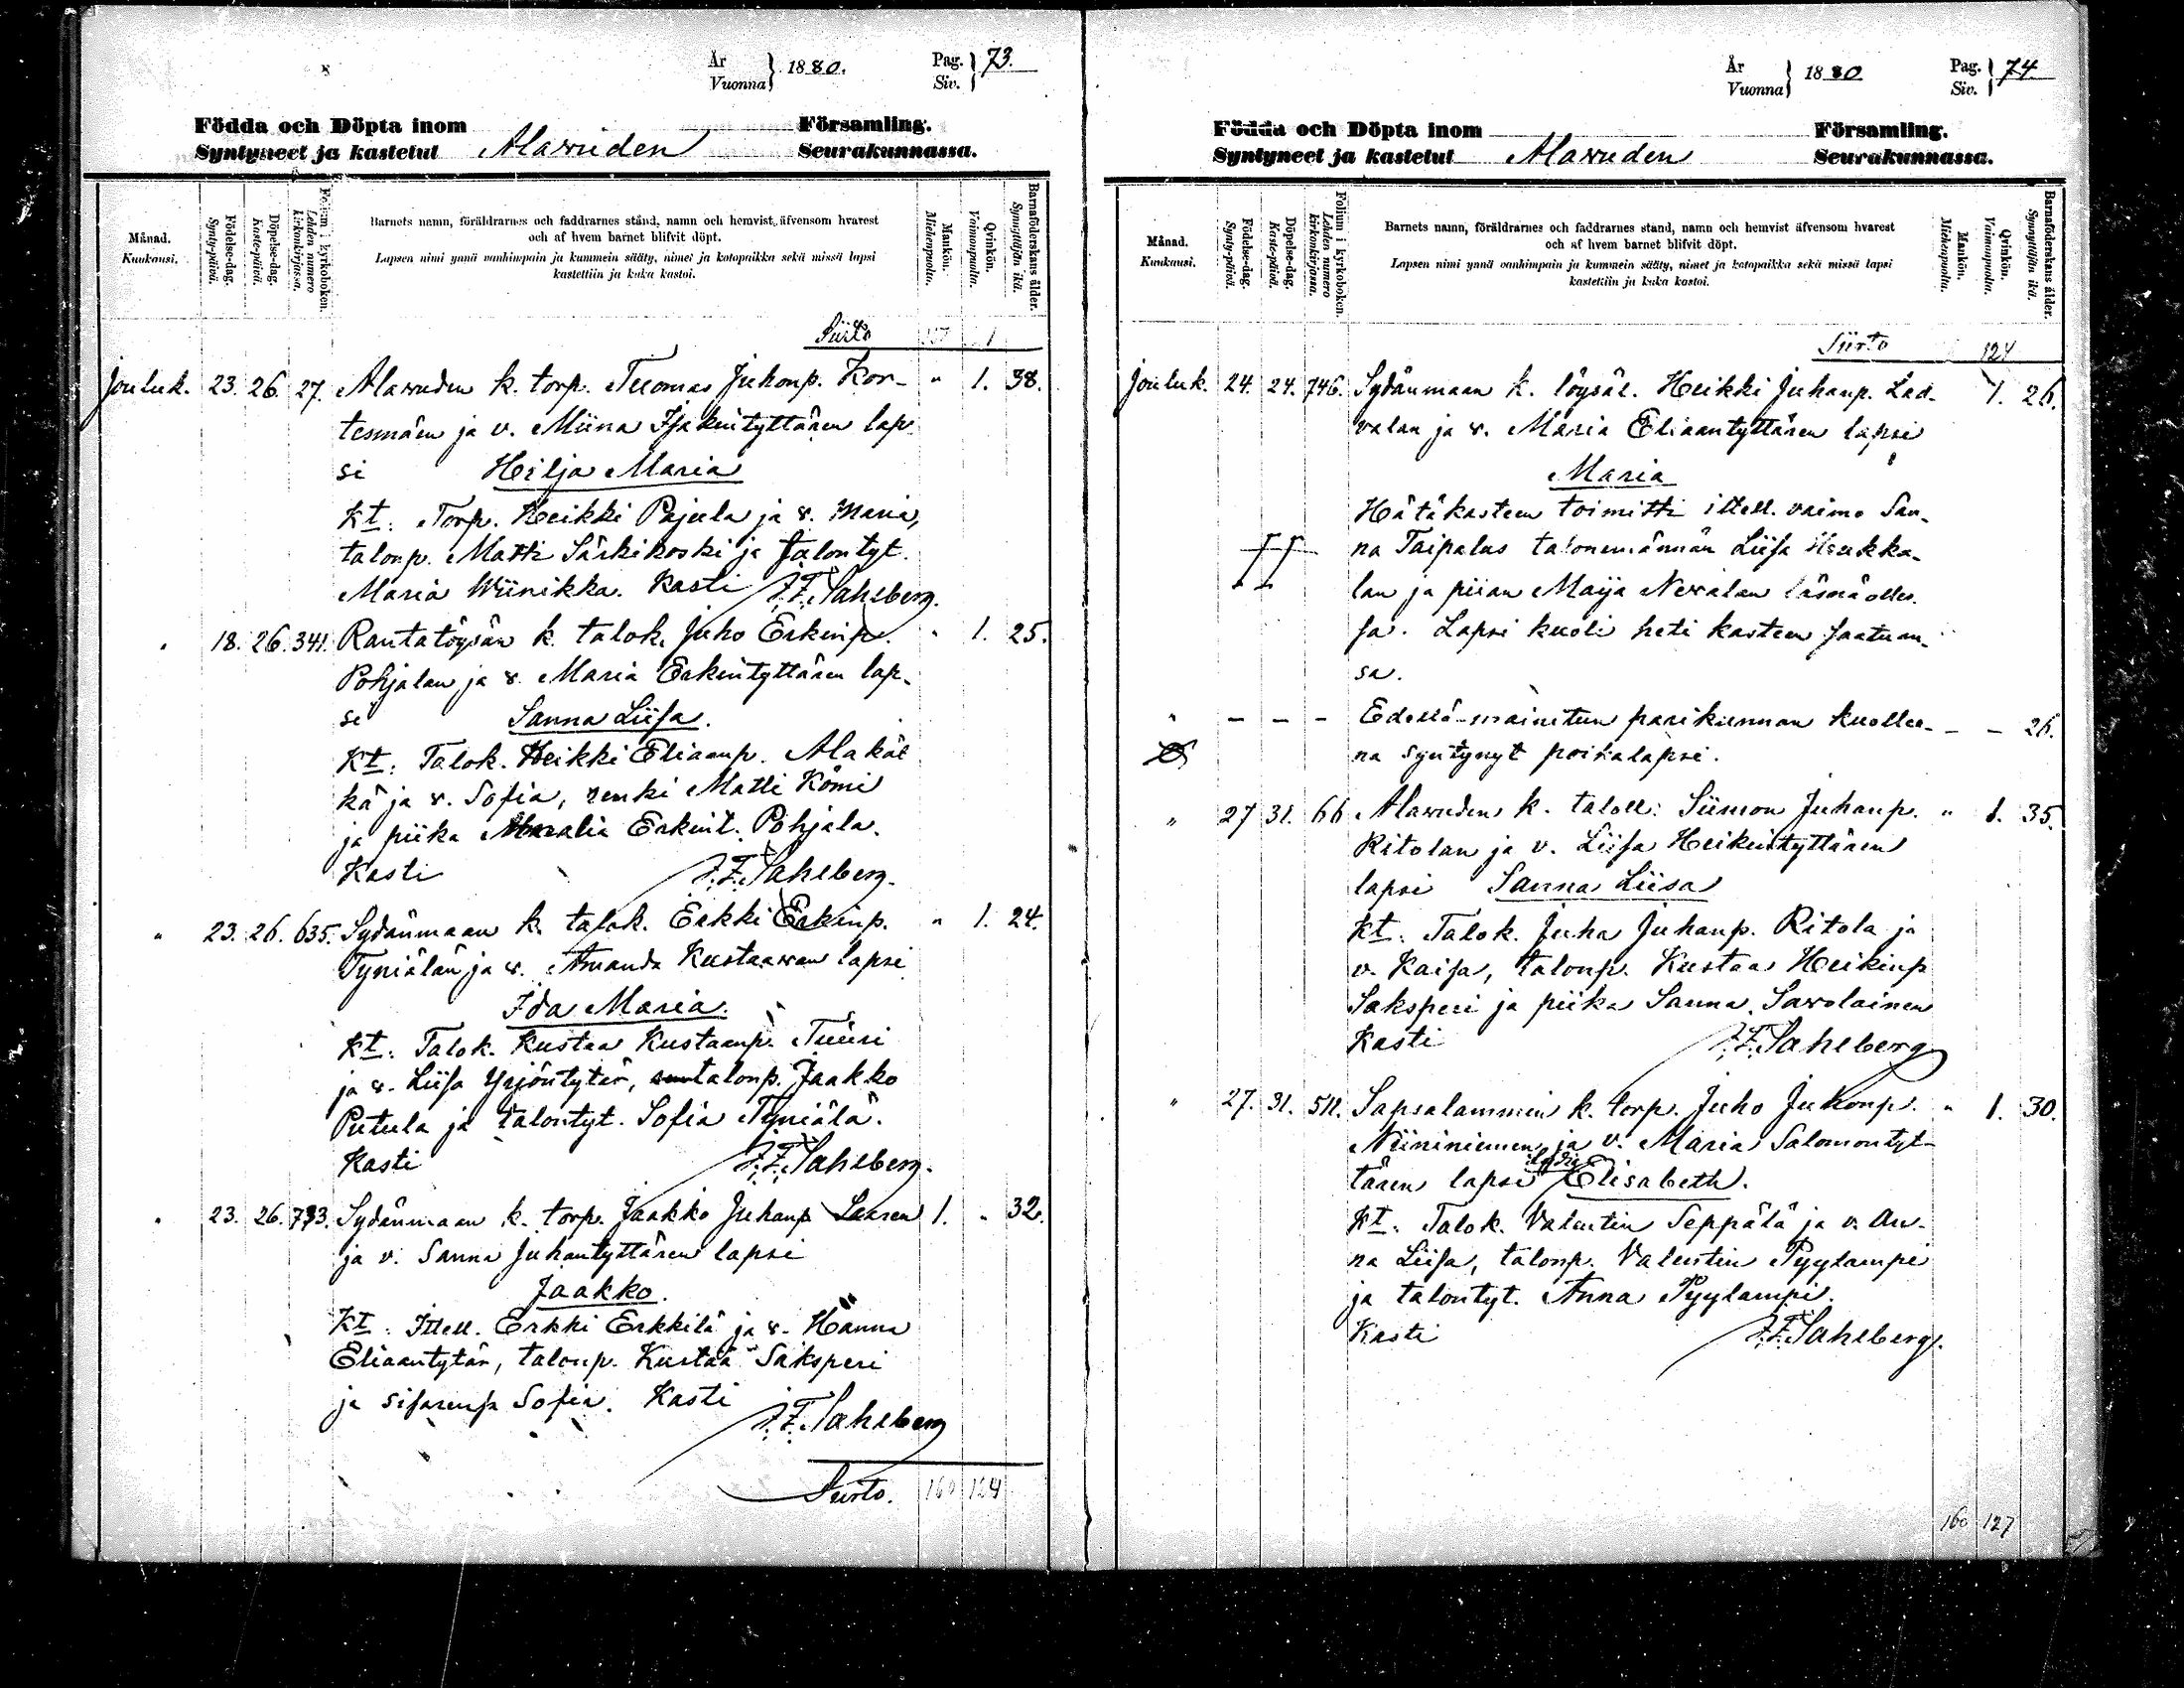 År
Vuonna } 1880.
Pag.
Siv. } 73.
Födda och Döpta inom Församling.
Syntyneet ja kastetut Alavuden Seurakunnassa.
Månad.
Kuukausi.
Födelse-dag.
Synty-päivä.
Döpelse-dag.
Kaste-päivä.
Folium i kyrkoboken.
Lehden numero kirkonkirjassa.
Barnets namn, föräldrarnes och faddrarnes stånd, namn och hemvist, äfvensom hvarest
och af hvem barnet blifvit döpt.
Lapsen nimi ynnä vanhimpain ja kummein sääty, nimet ja kotopaikka sekä missä lapsi
kastettiin ja kuka kastoi.
Mankön.
Miehenpuolia.
Qvinkön.
Vaimonpuolia.
Barnaföderskans ålder.
Synnyttäjän ikä.
Siirto
Jouluk. 23. 26. 27. Alavuden k. torp. Tuomas Juhonp. Kor- " 1. 38.
tesmäen ja v. Miina Isakintyttären lap
si Hilja Maria
Kt: Torp. Heikki Pajula ja v. Maria,
talonp. Matti Särkikoski ja talontyt.
Maria Wiinikka. Kasti J.F. Sahlberg.
" 18. 26. 341. Rantatöysän k. talok. Juho Erkinp. " 1. 25.
Pohjalan ja v. Maria Erkintyttären lap-
si Sanna Liisa.
Kt: Talok. Heikki Eliaanp. Alakäl
kä ja v. Sofia, renki Matti Kömi
ja piika Maralia Erkint. Pohjala.
Kasti J.F. Sahlberg.
" 23. 26. 635. Sydänmaan k. talok. Erkki Erkinp. " 1. 24.
Tyniälän ja v. Amanda Kustaavan lapsi
Ida Maria.
Kt: Talok. Kustaa Kustaanp. Tuuri
ja v. Liisa Yrjöntytär, talonp. Jaakko
Putula ja talontyt. Sofia Tyniälä.
Kasti J.F. Sahlberg.
" 23. 26. 733. Sydänmaan k. torp. Jaakko Juhanp Laasen 1. " 32.
ja v. Sanna Juhantyttären lapsi
Jaakko.
Kt: Ittell. Erkki Erkkilä ja v. Hanna
Eliaantytär, talonp. Kustaa Saksperi
ja sisarenp Sofia. Kasti
J.F. Sahlberg
Siirto. 160 124
År
Vuonna } 1880
Pag.
Siv. } 74
Födda och Döpta inom Församling.
Syntyneet ja kastetut Alavuden Seurakunnassa.
Månad.
Kuukausi.
Födelse-dag.
Synty-päivä.
Döpelse-dag.
Kaste-päivä.
Folium i kyrkoboken.
Lehden numero kirkonkirjassa.
Barnets namn, föräldrarnes och faddrarnes stånd, namn och hemvist äfvensom hvarest
och af hvem barnet blifvit döpt.
Lapsen nimi ynnä vanhimpain ja kummein sääty, nimet ja kotopaikka sekä missä lapsi
kastettiin ja kuka kastoi.
Mankön.
Miehenpuolia.
Qvinkön.
Vaimonpuolia.
Barnaföderskans ålder.
Synnyttäjän ikä.
Siirto 124
Jouluk. 24. 24. 746. Sydänmaan k. löysäl. Heikki Juhanp. Lad- 1. 26.
valan ja v. Maria Eliaantyttären lapsi
Maria
Hätäkasteen toimitti ittell. vaimo San-
na Taipalus talonemännän Liisa Heukka-
lan ja piian Maija Nevalan läsnäolles-
sa. Lapsi kuoli heti kasteen saatuan-
sa.
" - - - Edellä-mainitun parikunnan kuollee- - - 26.
na syntynyt poikalapsi.
" 27 31. 66 Alavuden k. taloll: Siimon Juhanp. " 1. 35.
Ritolan ja v. Liisa Heikintyttären
lapsi Sanna Liisa
Kt: Talok. Juha Juhanp. Ritola ja
v. Kaisa, talonp. Kustaa Heikinp
Saksperi ja piika Sanna Savolainen
Kasti J.F. Sahlberg
" 27. 31. 511. Sapsalammin k. torp. Juho Juhonp. " 1. 30.
Niininiemen ja v. Maria Salomontyt-
tären lapsi Elisabeth.
Kt: Talok. Valentin Seppälä ja v. An-
na Liisa, talonp. Valentin Pyylampi
ja talontyt. Anna Pyylampi.
Kasti J.F. Sahlberg.
160 127